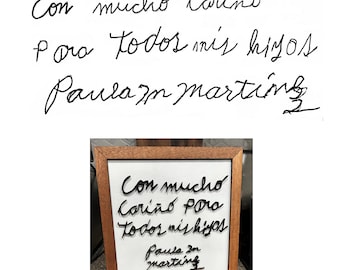 Con mucho cariño
para todos mis hijos
Paula M Martinez
Con mucho
cariño para
todos mis hijos
Paula M
Martinez